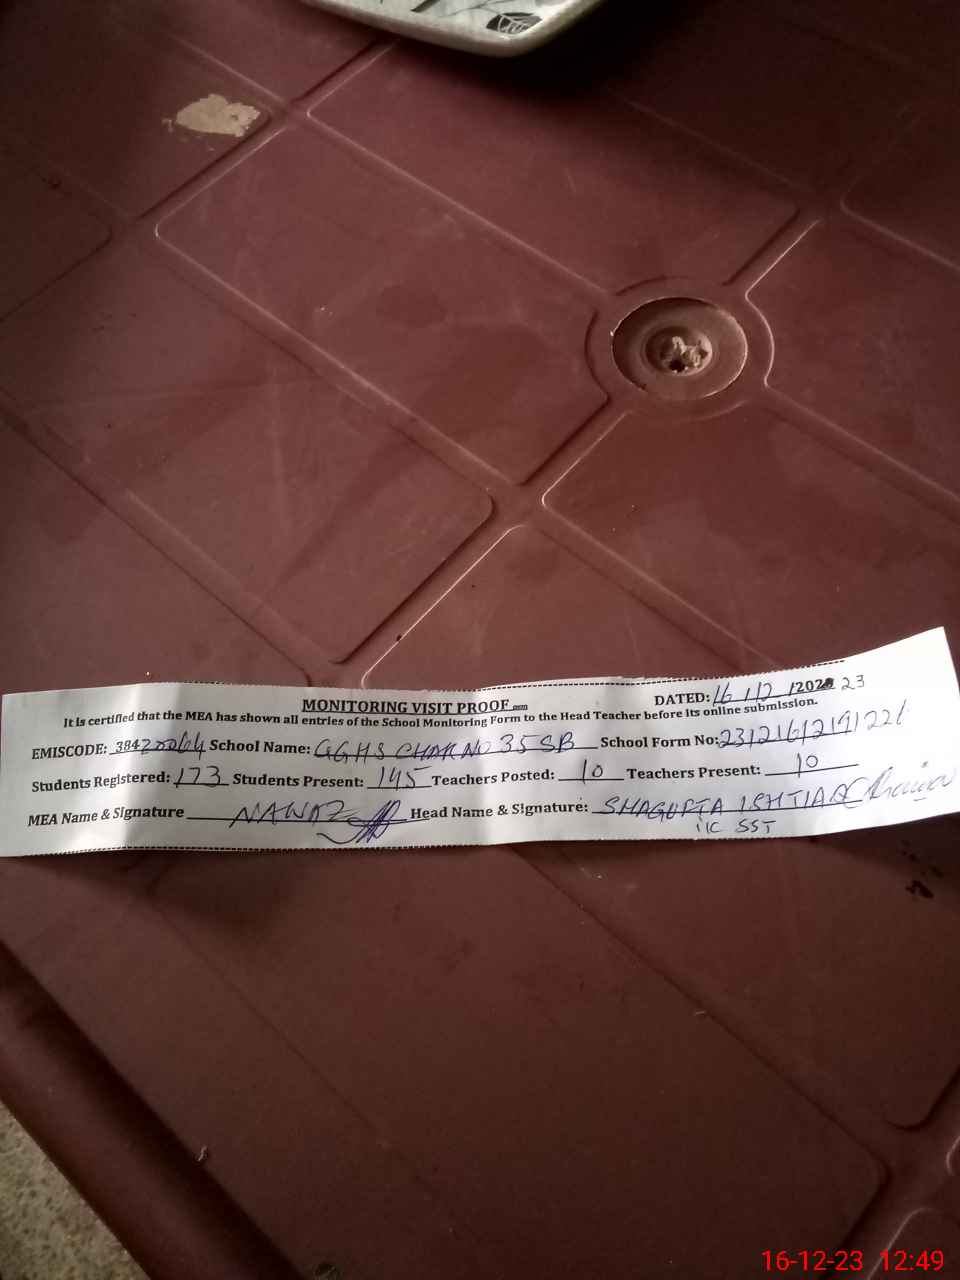 MONITORING VISIT PROOF
DATED: 16/12/2020 23
It is certified that the MEA has shown all entries of the School Monitoring Form to the Head Teacher before its online submission.
EMISCODE: 38420064 School Name: GGHS CHAK NO 35 SB School Form No: 231216121911221
Students Registered: 173 Students Present: 145 Teachers Posted: 10 Teachers Present: 10
MEA Name & Signature NAWAZ Head Name & Signature: SHAGUFTA ISHTIAQ
I/C SST
16-12-23 12:49